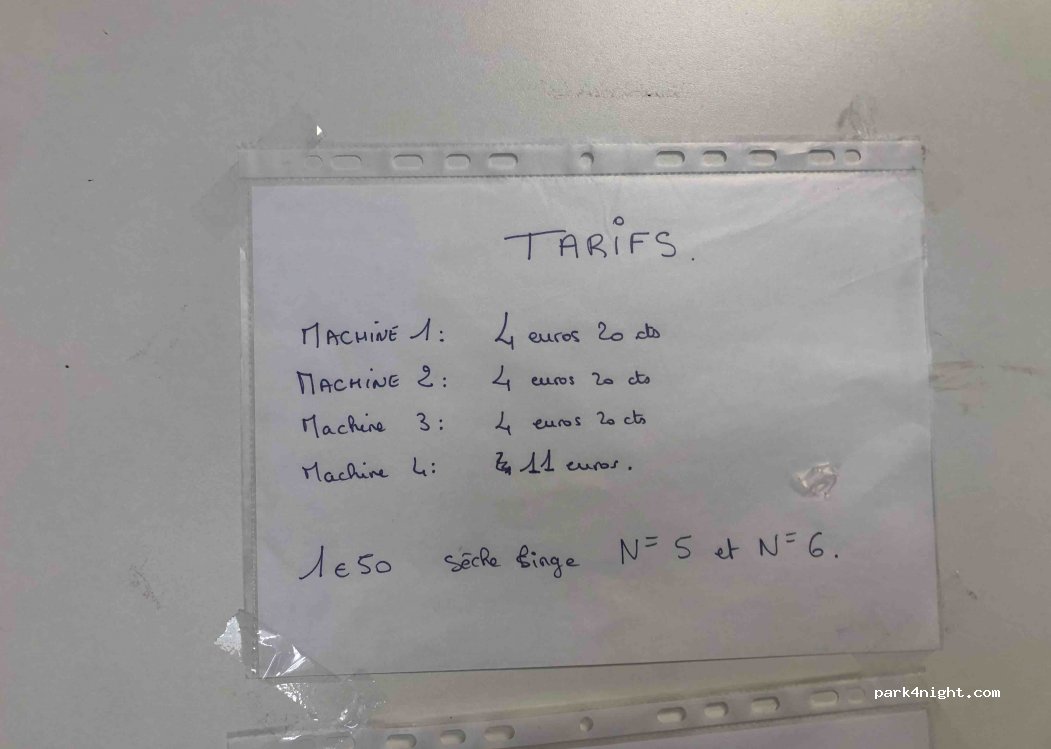 TARIFS.
MACHINE 1: 4 euros 20 cts
MACHINE 2: 4 euros 20 cts
Machine 3: 4 euros 20 cts
Machine 4: 11 euros.
1€50 Sèche linge N= 5 et N= 6.
park4night.com